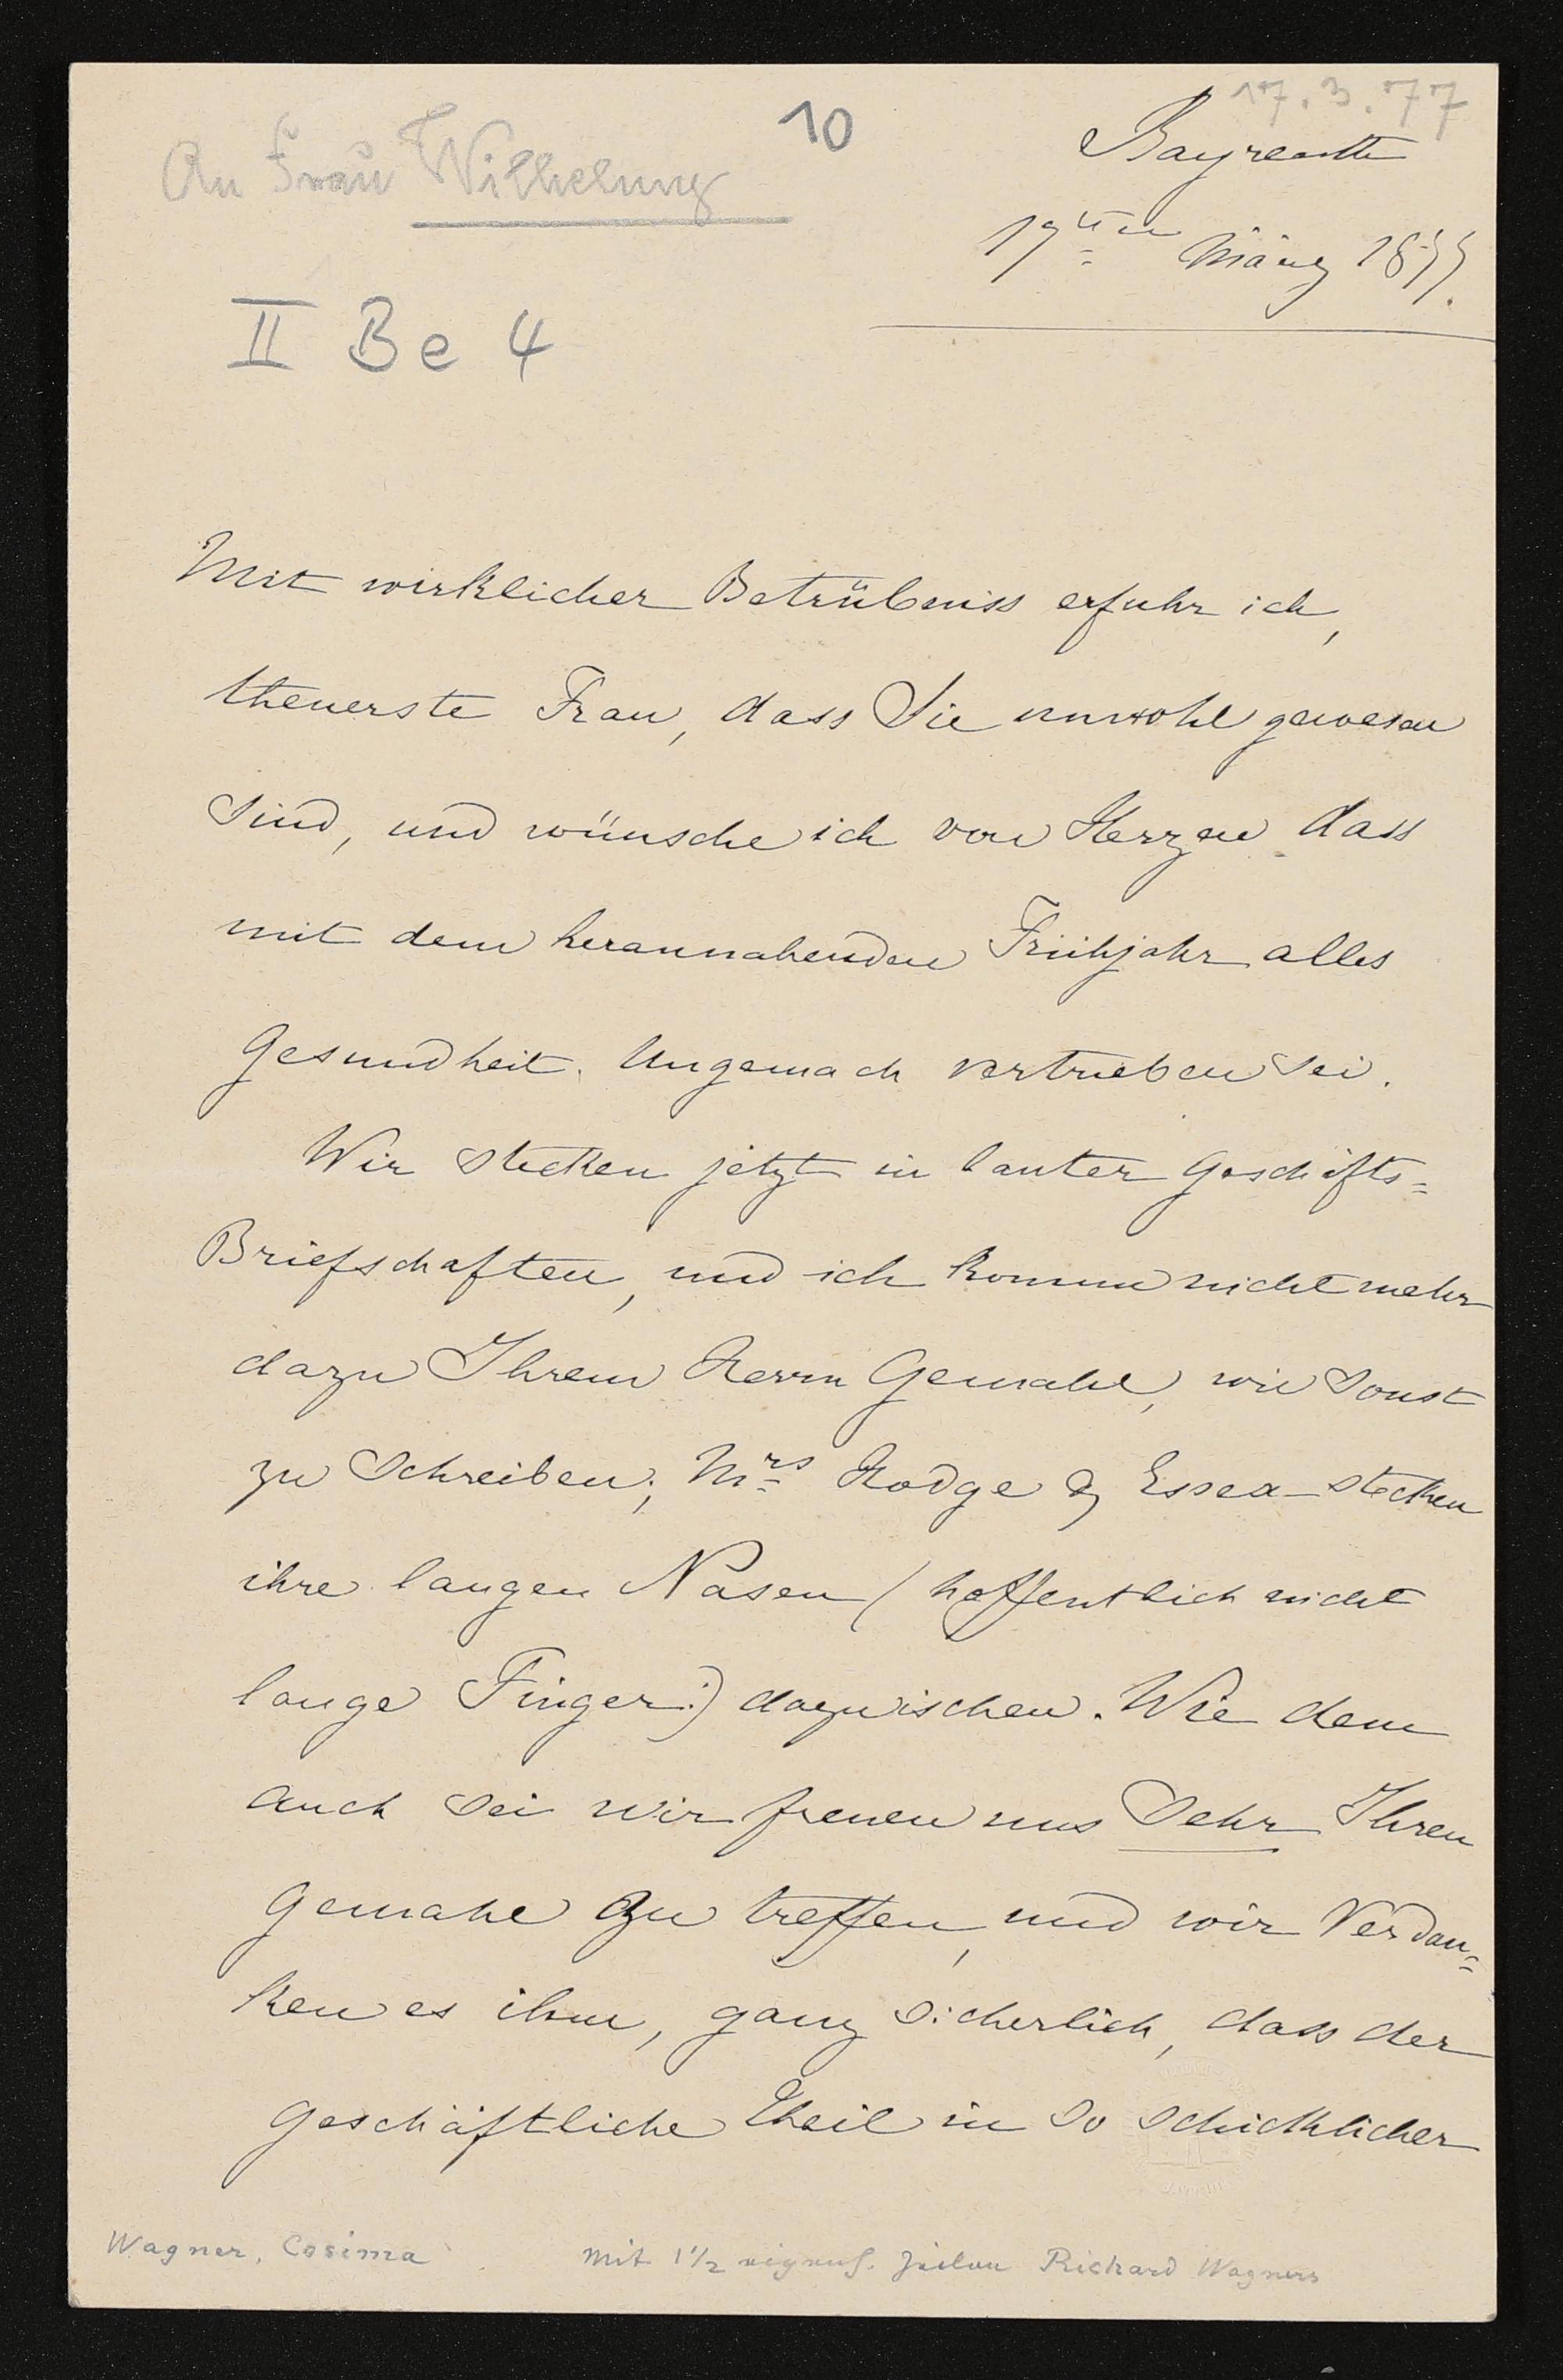 17.3.77
10
An Frau Wilhelmj
Bayreuth
17ten März 1877.
II Be 4
Mit wirklicher Betrübniss erfuhr ich,
theuerste Frau, dass Sie unwohl gewesen
sind, und wünsche ich von Herzen dass
mit dem herannahenden Frühjahr alles
Gesundheit. Ungemach vertrieben sei.
Wir stecken jetzt in lauter Geschäfts=
Briefschaften, und ich komme nicht mehr
dazu Ihrem Herrn Gemahl, wie sonst
zu schreiben; Mrs Hodge & Essex stecken
ihre langen Nasen (hoffentlich nicht
lange Finger!) dazwischen. Wie dem
auch sei wir freuen uns sehr Ihren
Gemahl zu treffen, und wir verdan=
ken es ihm, ganz sicherlich, dass der
geschäftliche Theil in so schicklicher
Wagner, Cosima
Mit 1 1/2 eigenh. Zeilen Richard Wagners